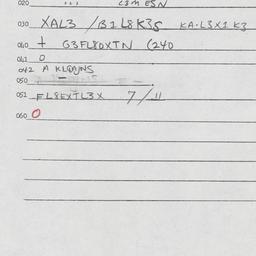 020
030 XAL3 /B1L8K3S KA·L3X1 K3
040 + G3FL8OXTN (240
041 0
042 A
050
051 FL8EXTL3X 7/11
060 O